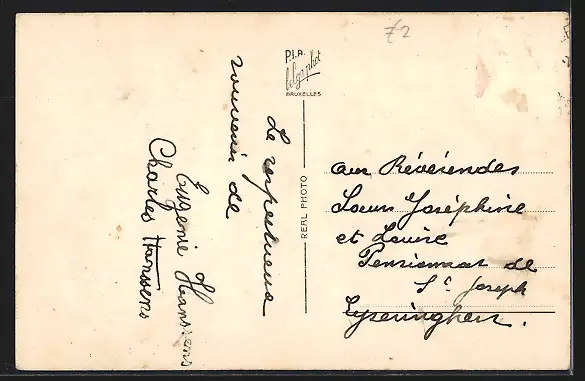 P.I.B.
belgaphot
BRUXELLES
REAL PHOTO
Le respectueux
souvenir de
Eugenie Hanssens
Charles Hanssens
aux Révérendes
Soeurs Joséphine
et Louise
Pensionnat de
St Joseph
Eyseringhen.